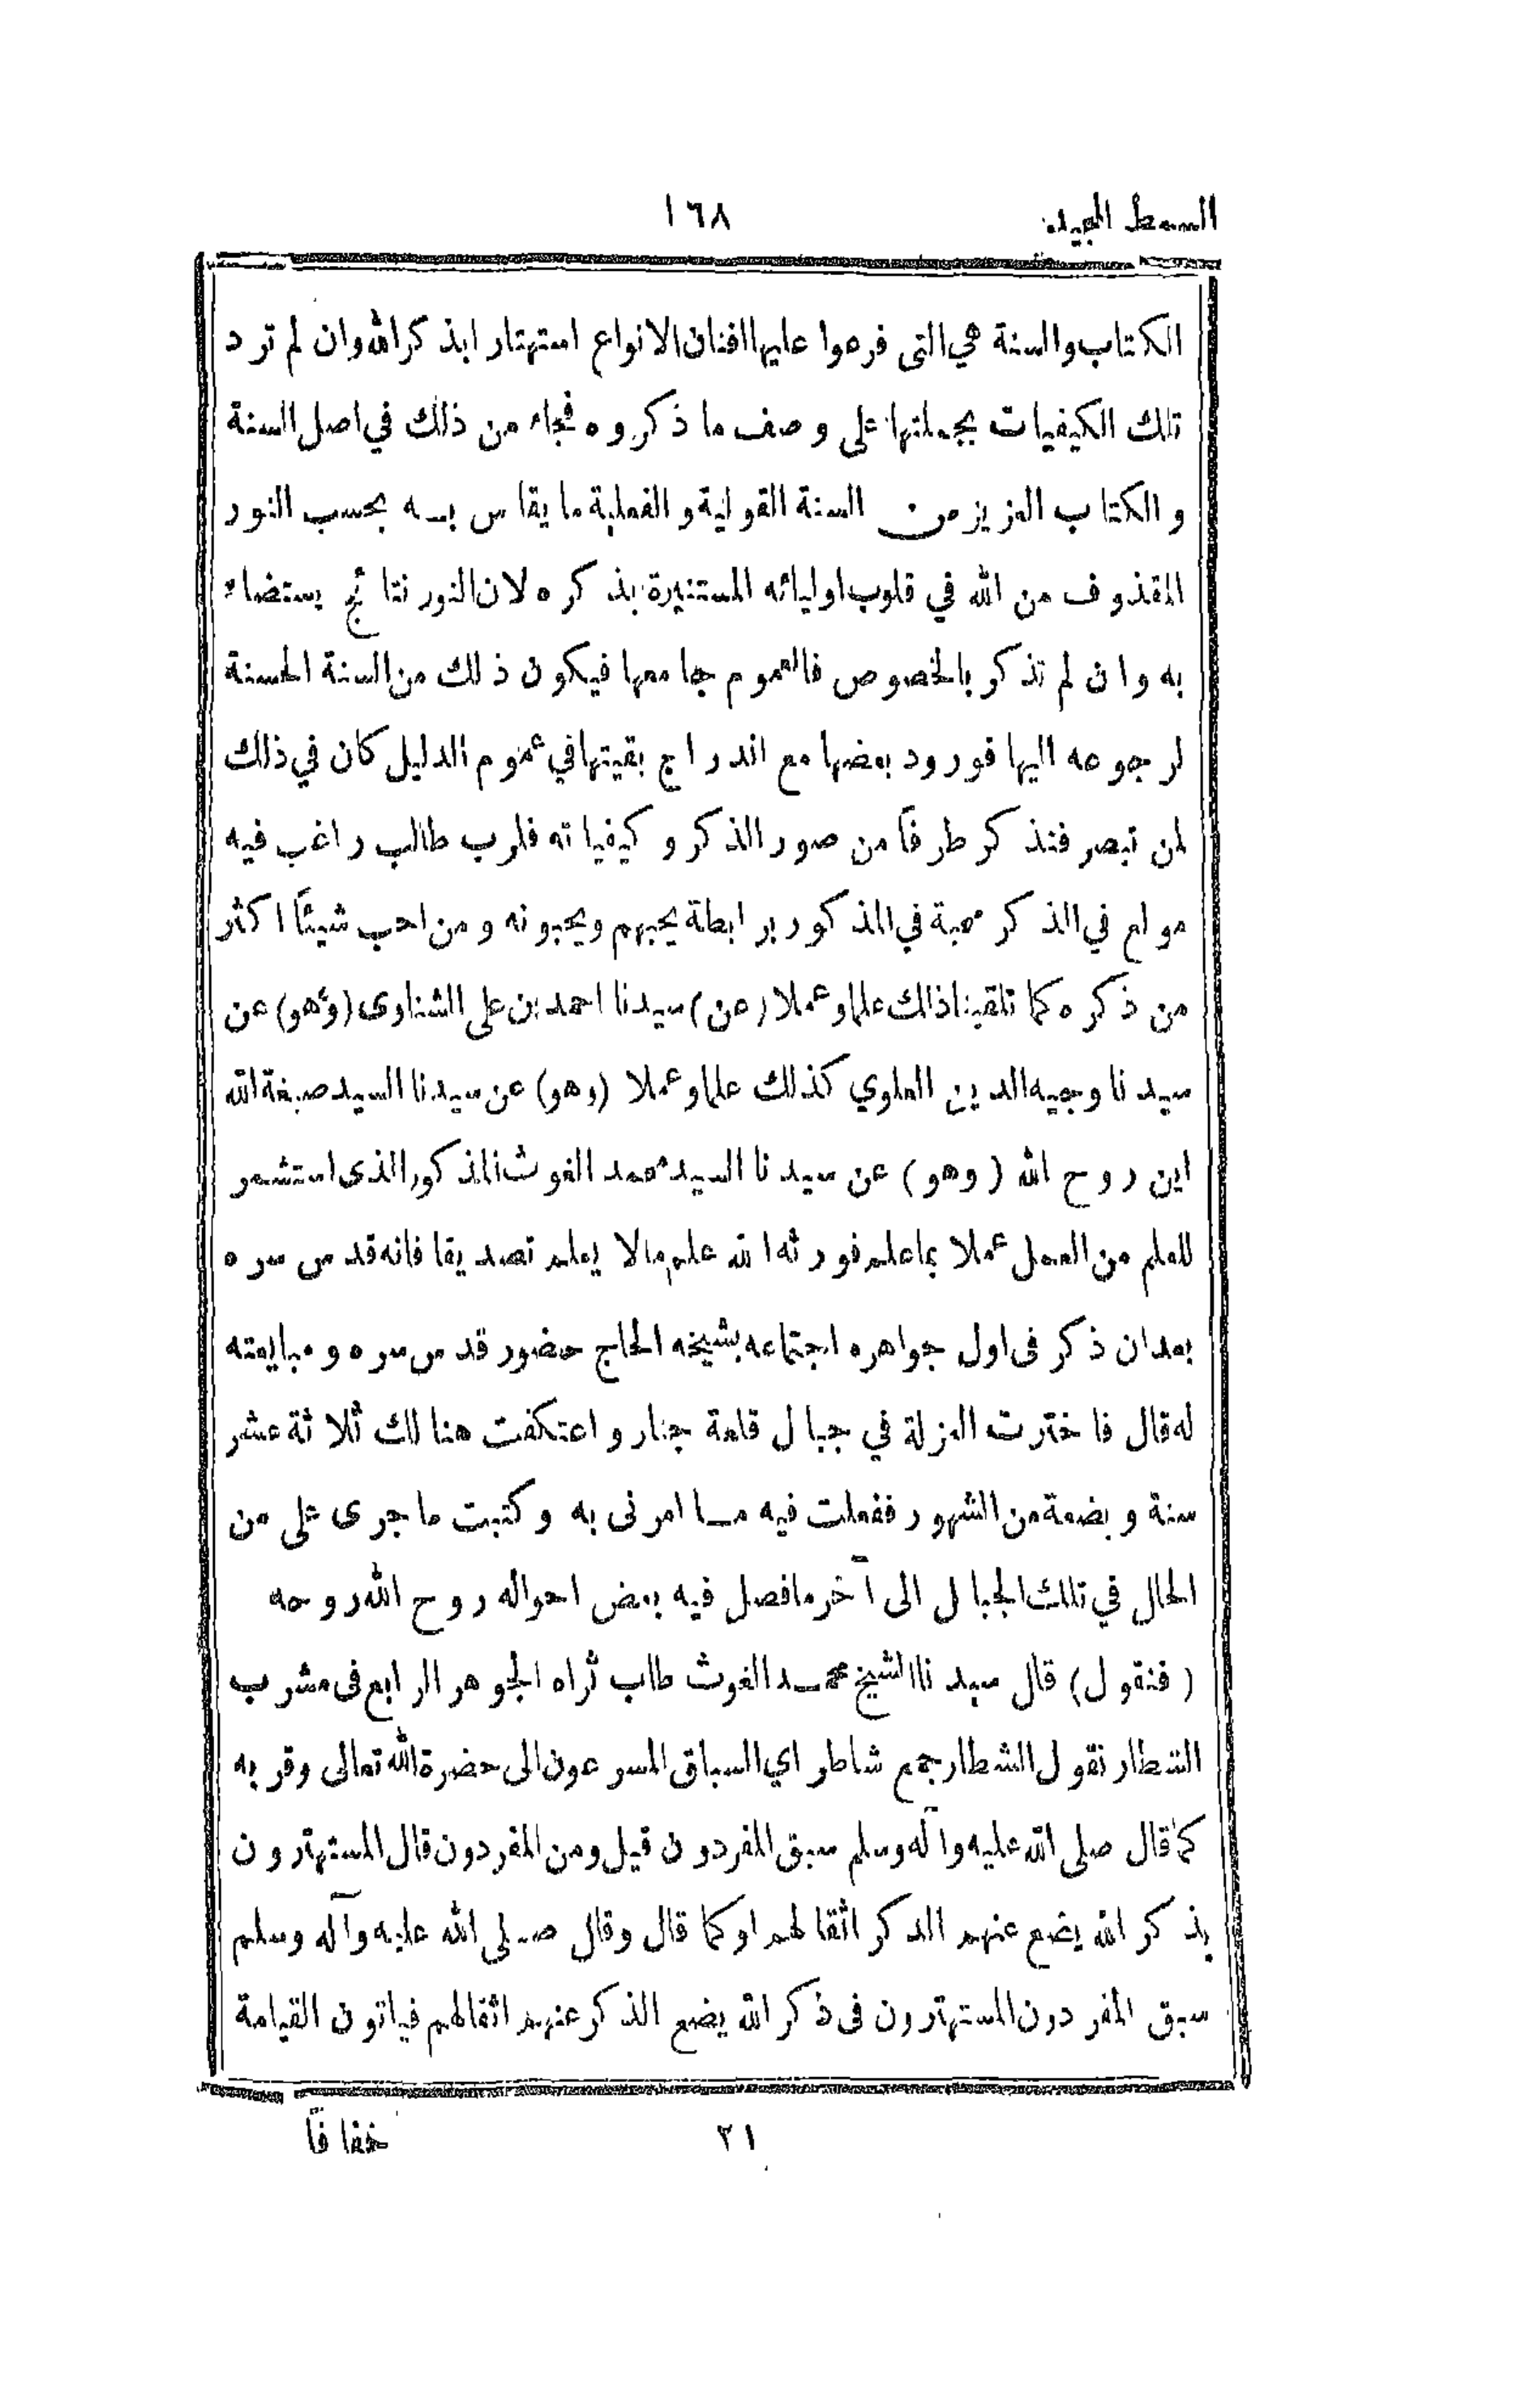 السمط المجيد ١٦٨
الكتاب والسنة هي التى فرعوا عليها افنان الانواع استهتارا بذكر الله وان لم ترد
تلك الكيفيات بجملتها على وصف ما ذكروه فجاء من ذلك في اصل السنة
والكتاب العزيز من السنة القولية والفعلية ما يقاس به بحسب النور
المقذوف من الله في قلوب اوليائه المستنيرة بذكره لان النور نتائج يستضاء
به وان لم تذكر بالخصوص فالعموم جامعها فيكون ذلك من السنة الحسنة
لرجوعه اليها فورود بعضها مع اندراج بقيتها في عموم الدليل كان في ذلك
لمن تبصر فنذكر طرفاً من صور الذكر وكيفياته فلرب طالب راغب فيه
مولع في الذكر محبة في المذكور برابطة يحبهم ويحبونه ومن احب شيئاً اكثر
من ذكره كما تلقينا ذالك علما وعملا (عن) سيدنا احمد بن على الشناوى (وهو) عن
سيدنا وجيه الدين العلوي كذلك علما وعملا (وهو) عن سيدنا السيد صبغة الله
ابن روح الله (وهو) عن سيدنا السيد محمد الغوث المذكور الذى استشمر
للعلم من العمل عملا بما علم فورثه الله علم مالا يعلم تصديقا فانه قدس سره
بعد ان ذكر فى اول جواهره اجتماعه بشيخه الحاج حضور قدس سره ومبايعته
له قال فاخترت العزلة في جبال قلعة جنار واعتكفت هنالك ثلاثة عشر
سنة وبضعة من الشهور ففعلت فيه ما امرنى به وكتبت ما جرى على من
الحال في تلك الجبال الى آخر ما فصل فيه بعض احواله روح الله روحه
(فنقول) قال سيدنا الشيخ محمد الغوث طاب ثراه الجوهر الرابع فى مشرب
الشطار نقول الشطار جمع شاطر اي السباق المسرعون الى حضرة الله تعالى وقربه
كما قال صلى الله عليه وآله وسلم سبق المفردون قيل ومن المفردون قال المستهترون
بذكر الله يضع عنهم الذكر اثقالهم او كما قال وقال صلى الله عليه وآله وسلم
سبق المفردون المستهترون فى ذكر الله يضع الذكر عنهم اثقالهم فياتون القيامة
٢١ خفافاً